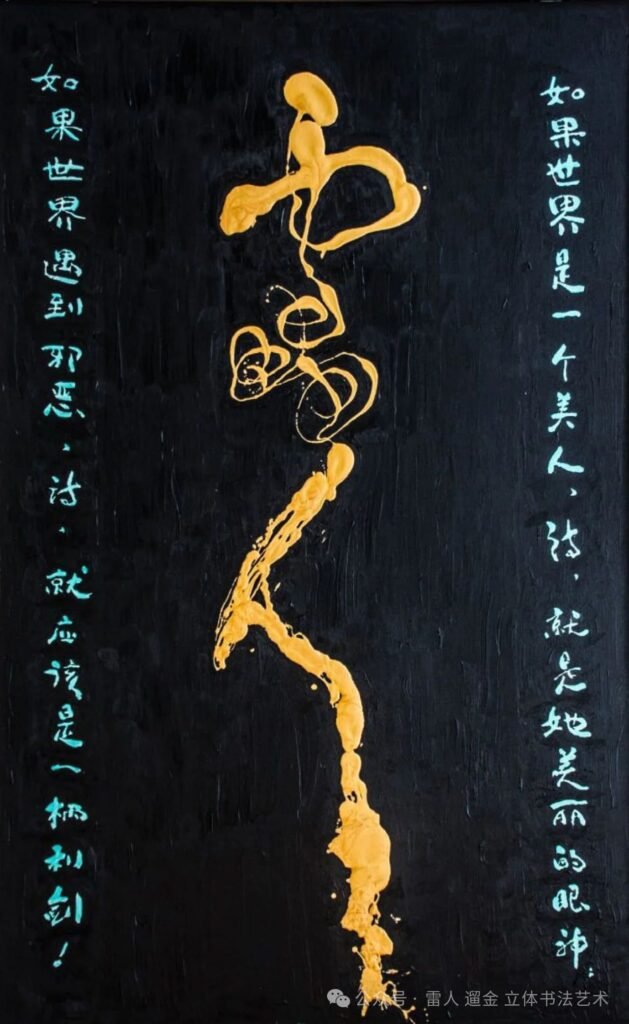 如果世界是一个美人，诗，就是她美丽的眼神；
如果世界遇到邪恶，诗，就应该是一柄利剑！
公众号 · 雷人 遛金 立体书法艺术